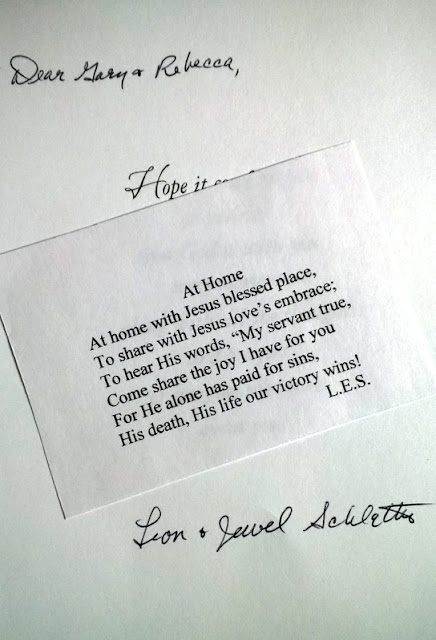 Dear Gary & Rebecca,
Hope it
At Home
At home with Jesus blessed place,
To share with Jesus love's embrace;
To hear His words, “My servant true,
Come share the joy I have for you
For He alone has paid for sins,
His death, His life our victory wins!
L.E.S.
Leon & Jewel